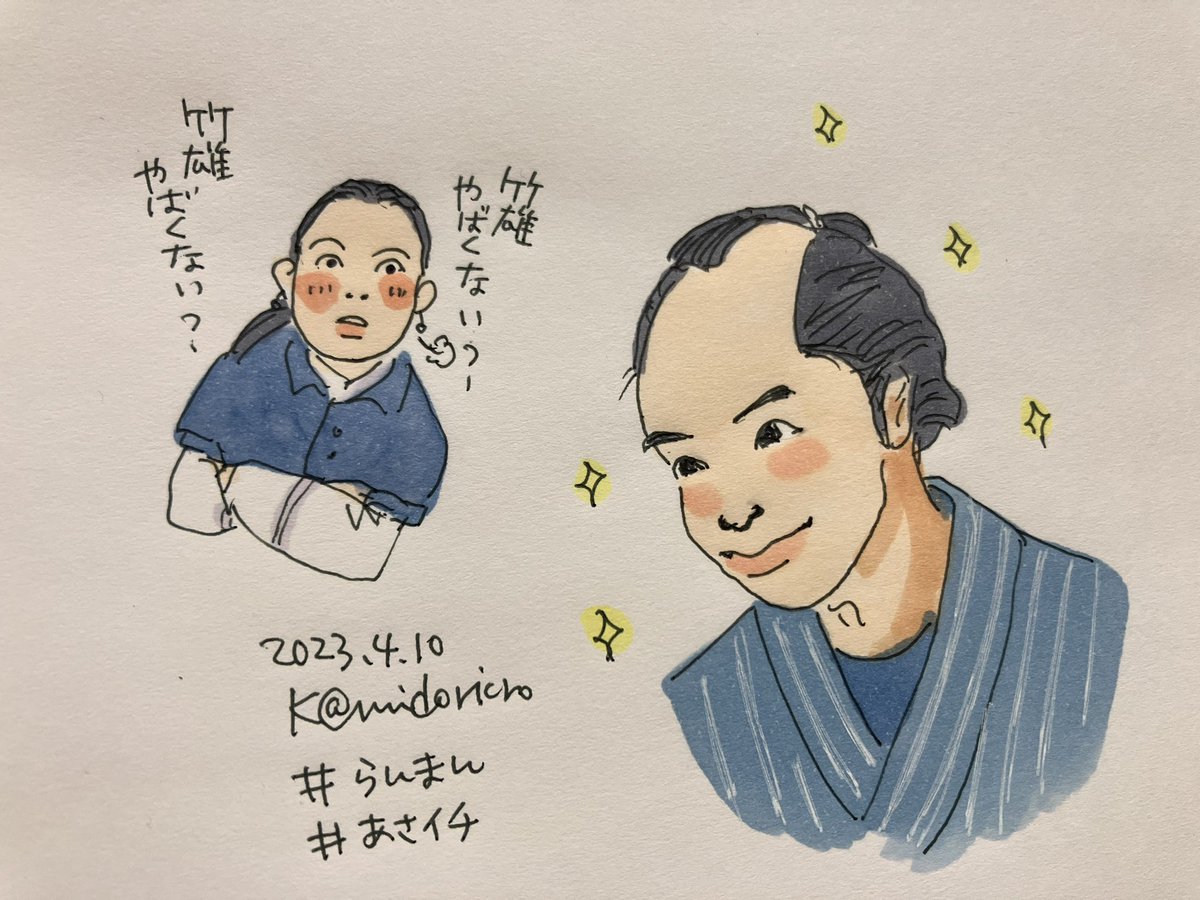 竹雄
やばくないっ
竹雄
やばくないっー
2023.4.10
K@midoricro
#らんまん
#あさイチ